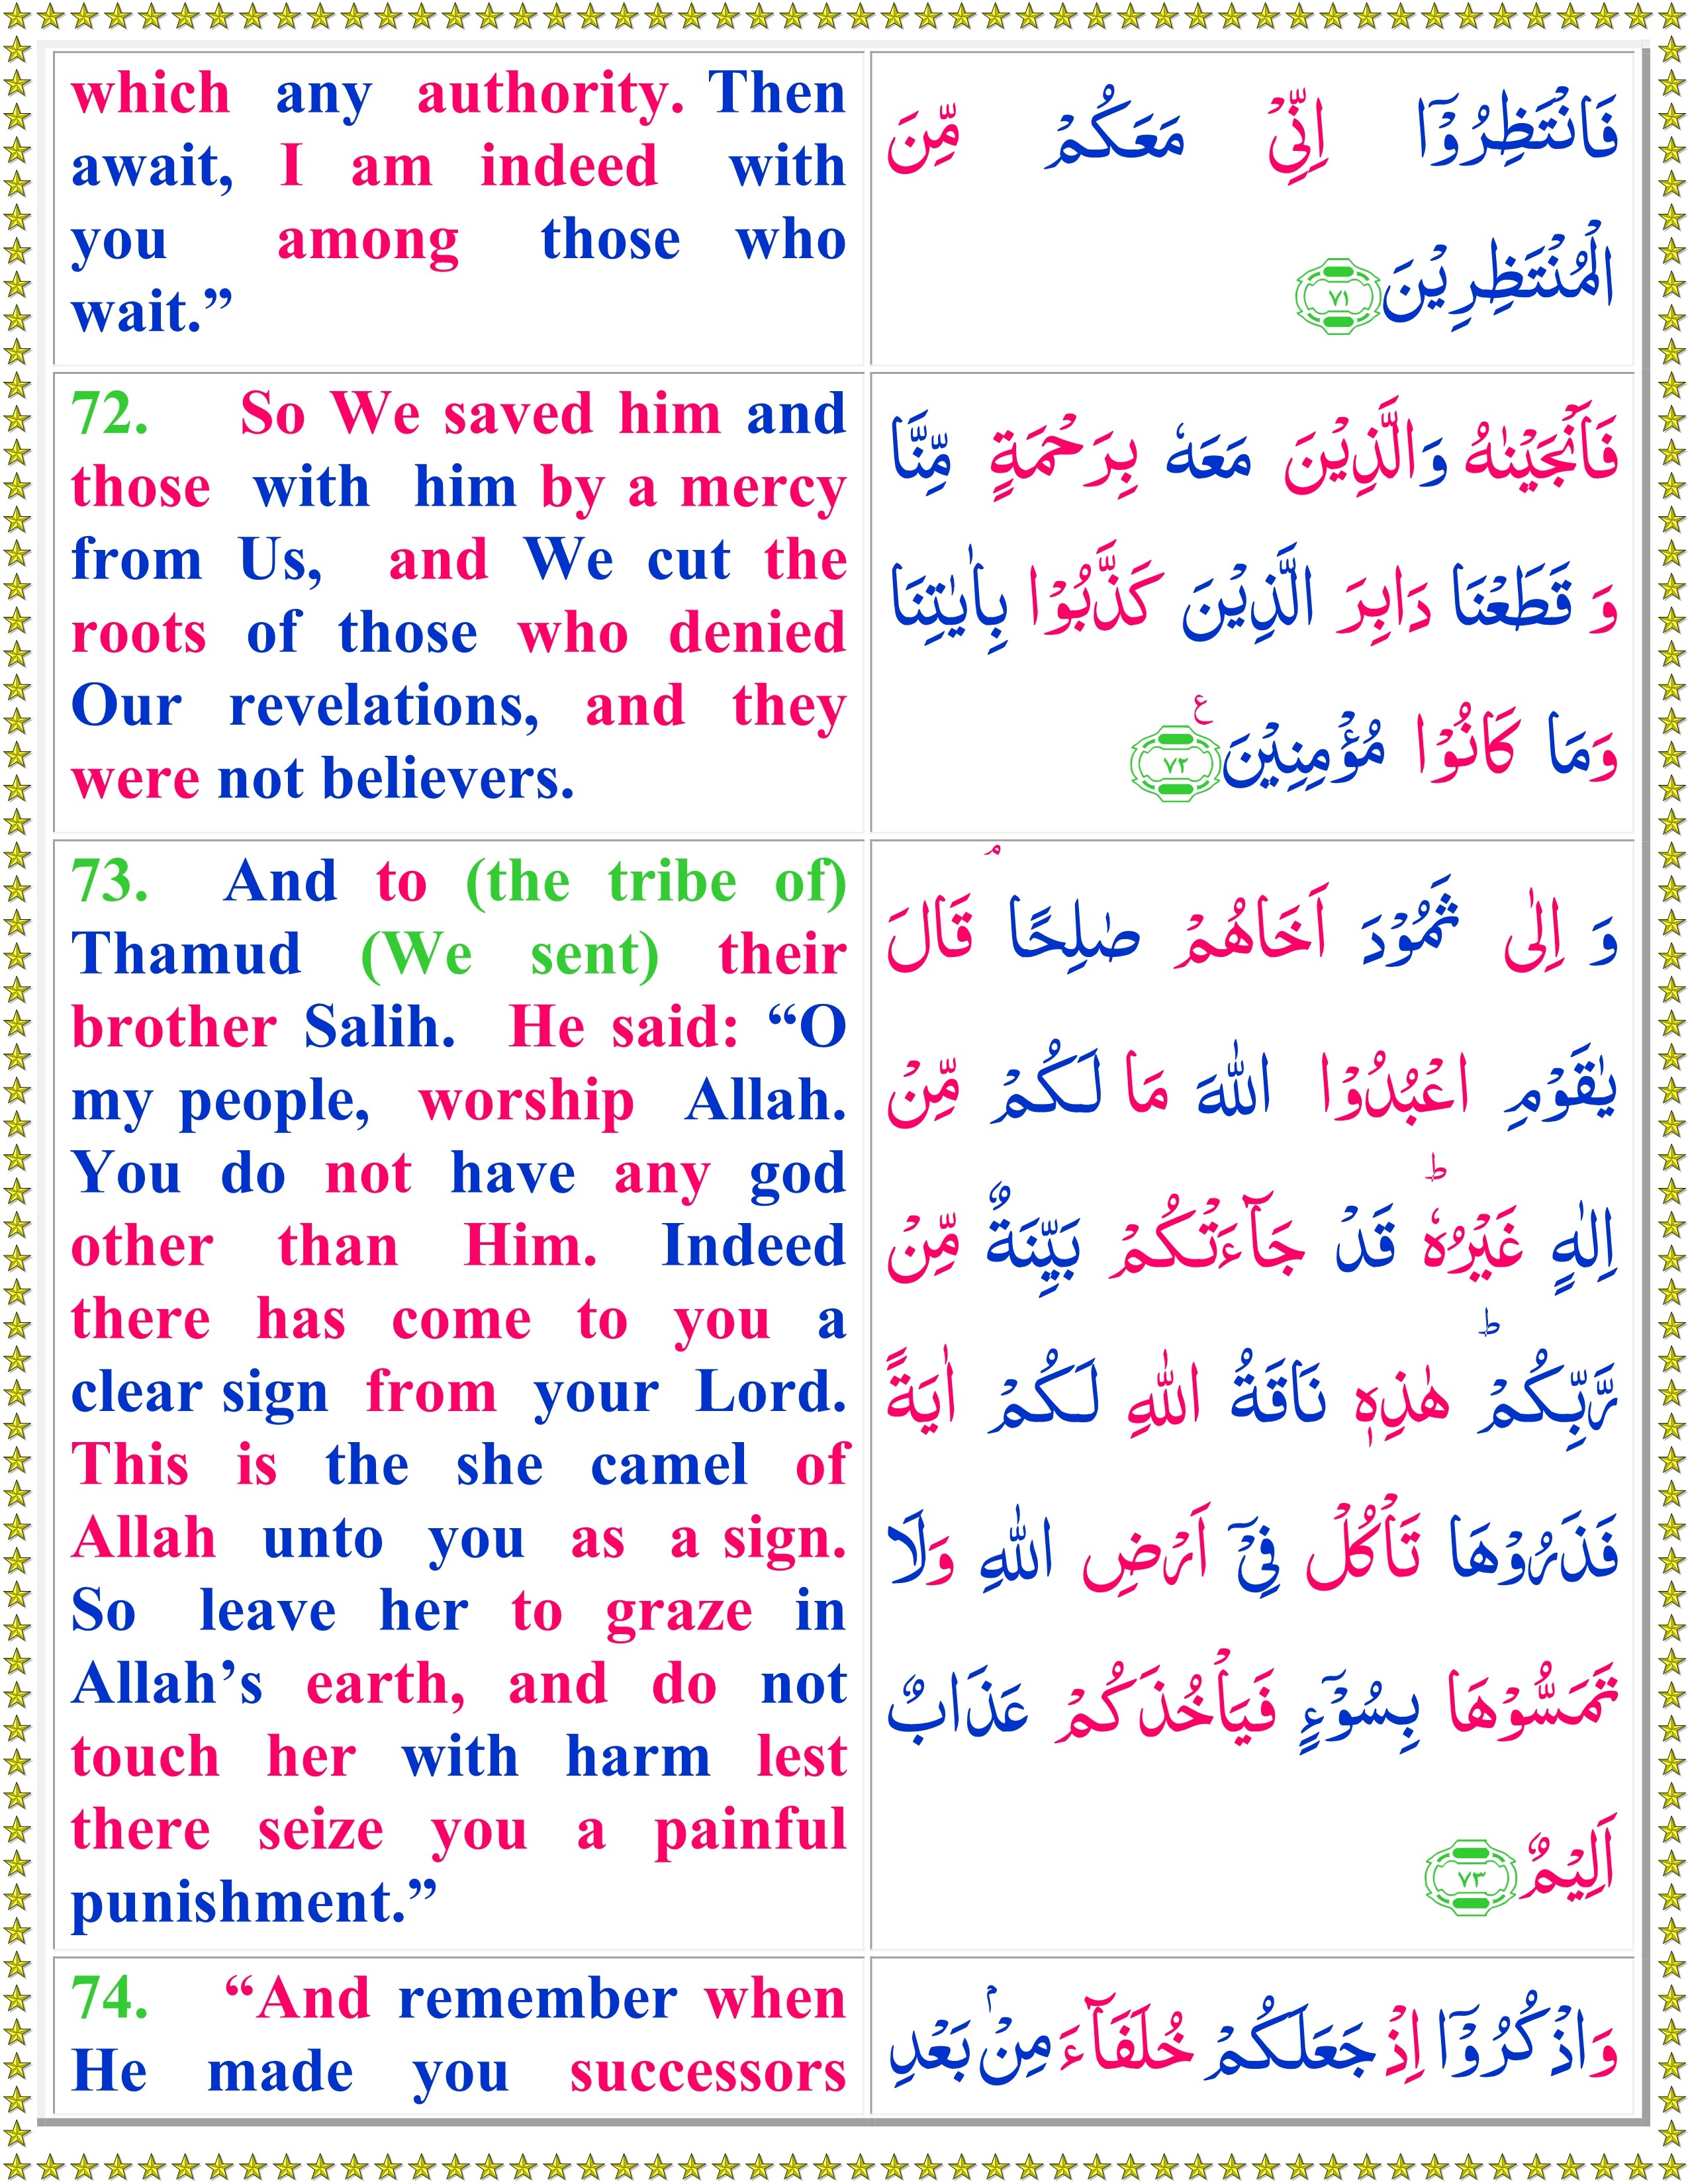 which any authority. Then
await, I am indeed with
you among those who
wait.”
فَانْتَظِرُوْۤا اِنِّىْ مَعَكُمْ مِّنَ
الْمُنْتَظِرِيْنَ ﴿۷۱﴾
72. So We saved him and
those with him by a mercy
from Us, and We cut the
roots of those who denied
Our revelations, and they
were not believers.
فَاَنْجَيْنٰهُ وَالَّذِيْنَ مَعَهٗ بِرَحْمَةٍ مِّنَّا
وَ قَطَعْنَا دَابِرَ الَّذِيْنَ كَذَّبُوْا بِاٰيٰتِنَا
وَمَا كَانُوْا مُؤْمِنِيْنَ ﴿۷۲﴾ ع
73. And to (the tribe of)
Thamud (We sent) their
brother Salih. He said: “O
my people, worship Allah.
You do not have any god
other than Him. Indeed
there has come to you a
clear sign from your Lord.
This is the she camel of
Allah unto you as a sign.
So leave her to graze in
Allah’s earth, and do not
touch her with harm lest
there seize you a painful
punishment.”
وَ اِلٰى ثَمُوْدَ اَخَاهُمْ صٰلِحًا‌ ۘ قَالَ
يٰقَوْمِ اعْبُدُوْا اللّٰهَ مَا لَـكُمْ مِّنْ
اِلٰهٍ غَيْرُهٗ‌ ؕ قَدْ جَآءَتْكُمْ بَيِّنَةٌ مِّنْ
رَّبِّكُمْ‌ ؕ هٰذِهٖ نَاقَةُ اللّٰهِ لَـكُمْ اٰيَةً
فَذَرُوْهَا تَاْكُلْ فِىْۤ اَرْضِ اللّٰهِ وَلَا
تَمَسُّوْهَا بِسُوْۤءٍ فَيَاْخُذَكُمْ عَذَابٌ
اَلِيْمٌ ﴿۷۳﴾
74. “And remember when
He made you successors
وَاذْكُرُوْۤا اِذْ جَعَلَكُمْ خُلَفَآءَ مِنْۢ بَعْدِ